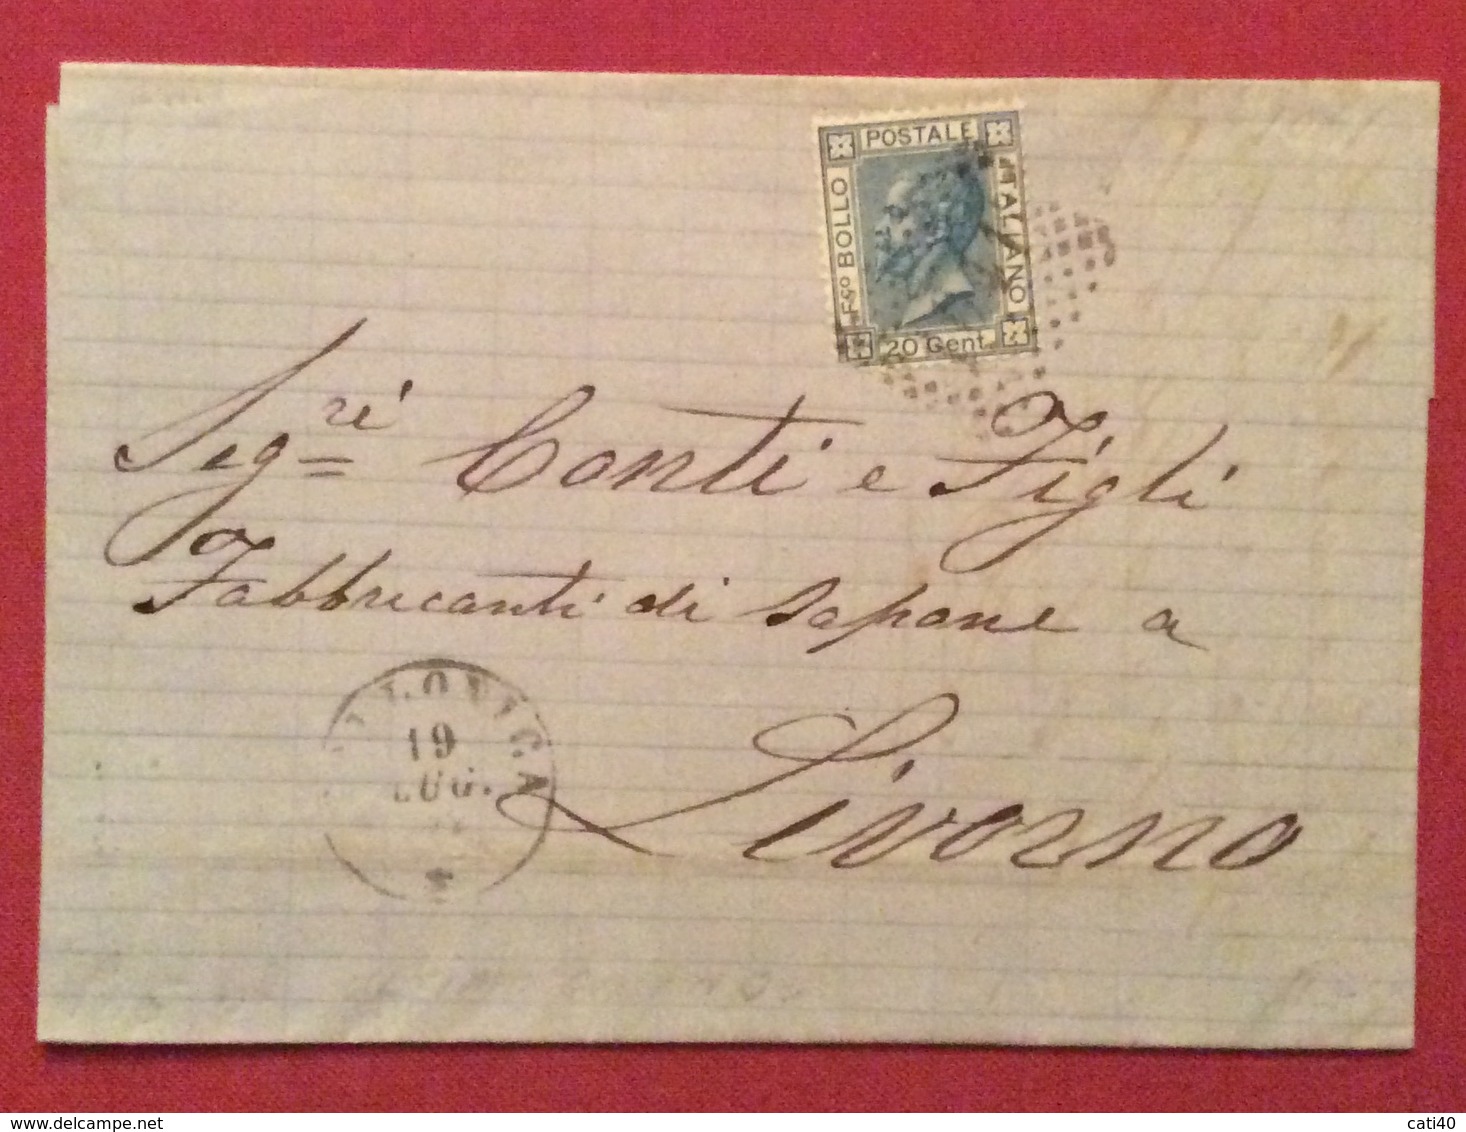 POSTALE
F.CO BOLLO
ITALIANO
20 Cent.
Segri Conti e Figli
Fabbricanti di Sapone a
Livorno
19
LUG.
cati40